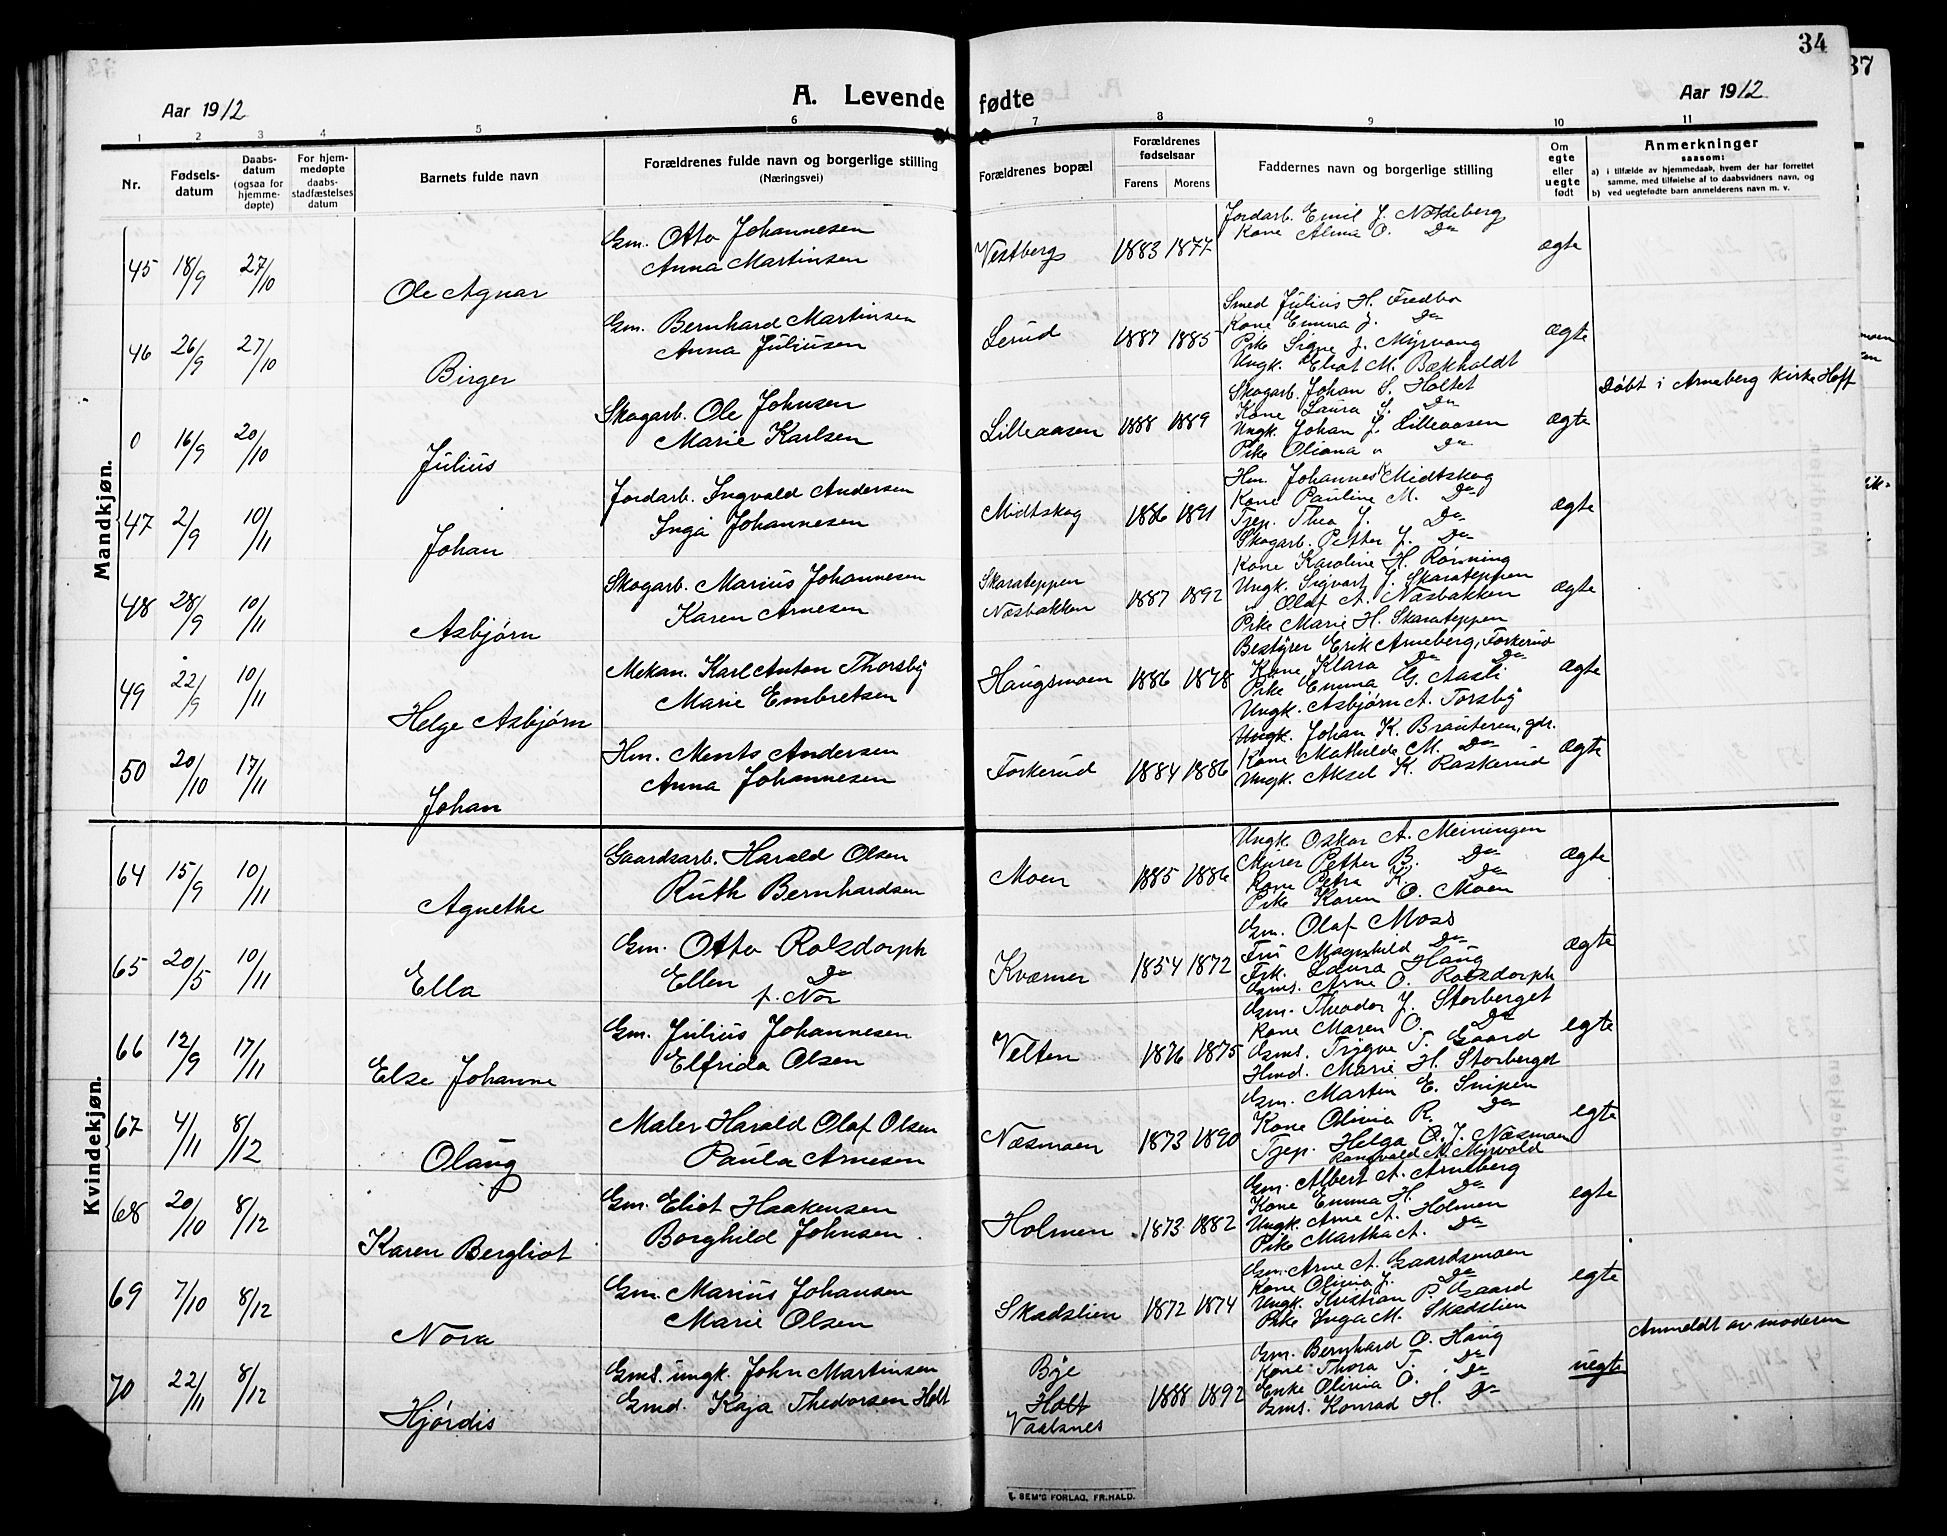 34
37
Aar 1912
A. Levende fødte
Aar 1912
1 2 3 4 5 6 7 8 9 10 11
Nr.
Fødsels-
datum
Daabs-
datum
(ogsaa for
hjemme-
døpte)
For hjem-
medøpte
daabs-
stadfæstelses
datum
Barnets fulde navn
Forældrenes fulde navn og borgerlige stilling
(Næringsvei)
Forældrenes bopæl
Forældrenes
fødselsaar
Farens Morens
Faddernes navn og borgerlige stilling
Om
egte
eller
uegte
født
Anmerkninger
saasom:
a) i tilfælde av hjemmedaab, hvem der har forrettet
samme, med tilføielse af to daabsvidners navn, og
b) ved uegtefødte barn anmelderens navn m. v.
Mandkjøn.
45 18/9 27/10 Ole Agnar
Gm. Otto Johannesen
Anna Martinsen
Vestberg 1883 1877
Jordarb. Emil J. Noldeberg
Kone Alma O. Do
ægte
46 26/9 27/10 Birger
Gm. Bernhard Martinsen
Anna Juliusen
Lerud 1887 1885
Smed Julius H. Fredbo
Kone Emma J. Do
Pike Signe J. Myrvang
Ungk. Eliot M. Bækholdt
ægte
0 16/9 20/10 Julius
Skogarb. Ole Johnsen
Marie Karlsen
Lilleaasen 1888 1889
Skogarb. Johan S. Holtet
Kone Laura J. Do
Ungk. Johan J. Lilleaasen
Pike Oliana " Do
ægte
Døbt i Arneberg Kirke Hoff
47 2/9 10/11 Johan
Jordarb. Ingvald Andersen
Inga Johannesen
Midtskog 1886 1891
Hm. Johannes Midtskog
Kone Pauline M. Do
Tjep. Thea J. Do
Skogarb. Petter J. Do
ægte
48 28/9 10/11 Asbjørn
Skogarb. Marius Johannesen
Karen Arnesen
Skarateppen
Næsbakken 1887 1892
Kone Karoline H. Rønning
Ungk. Sigvart J. Skarateppen
" Olaf A. Næsbakken
Pike Marie H. Skarateppen
ægte
49 22/9 10/11 Helge Asbjørn
Mekan. Karl Anton Thorsby
Marie Embretsen
Haugsmoen 1886 1878
Bestyrer Erik Arneberg, Forkerud
Kone Klara Do Do
Pike Emma G. Aasli
Ungk. Asbjørn A. Torsby
ægte
50 20/10 17/11 Johan
Hm. Ments Andersen
Anna Johannesen
Forkerud 1884 1886
Ungk. Johan K. Brauteren, gdr.
Kone Mathilde M. Do
Ungk. Aksel K. Raskerud
ægte
Kvindekjøn.
64 15/9 10/11 Agnethe
Gaardsarb. Harald Olsen
Ruth Bernhardsen
Moen 1885 1886
Ungk. Oskar A. Meiningen
Murer Petter B. Do
Kone Petra K. Do
Pike Karen O. Moen
ægte
65 20/5 10/11 Ella
Gm. Otto Rolsdorph
Ellen Do
f. Nor
Kværner 1854 1872
Gm. Olaf Moss
Fru Magnhild Do
Frk. Laura Haug
Gms. Arne O. Rolsdorph
ægte
66 12/9 17/11 Else Johanne
Gm. Julius Johannesen
Elfrida Olsen
Velten 1876 1875
Gm. Theodor J. Storberget
Kone Maren O. Do
Gms. Trygve T. Gaard
Hmd. Marie H. Storberget
egte
67 4/11 8/12 Olaug
Maler Harald Olaf Olsen
Paula Arnesen
Næsmoen 1873 1890
Gm. Martin E. Snipen
Kone Olivia R. Do
Tjep. Helga O. J. Næsmoen
Rangvald A. Myrvold
egte
68 20/10 8/12 Karen Bergliot
Gm. Eliot Haakensen
Borghild Johnsen
Holmen 1873 1882
Gm. Albert A. Arneberg
Kone Emma H. Do
Ungk. Arne A. Holmen
Pike Martha A. Do
egte
69 7/10 8/12 Nora
Gm. Marius Johansen
Marie Olsen
Skadslien 1872 1874
Gm. Arne A. Gaardsmoen
Kone Olivia J. Do
Ungk. Kristian P. Gaard
Pike Inga M. Skadslien
egte
70 22/11 8/12 Hjørdis
Gms. ungk. John Martinsen
Gmd. Kaja Thedorsen Holt
Bye
Holt
Vaalsnes 1888 1892
Gm. Bernhard O. Haug
Kone Thora T. Do
Enke Olivia O. Do
Gms. Konrad H. Do
uegte
Anmeldt av moderen
E. SEM'S FORLAG, FR.HALD.